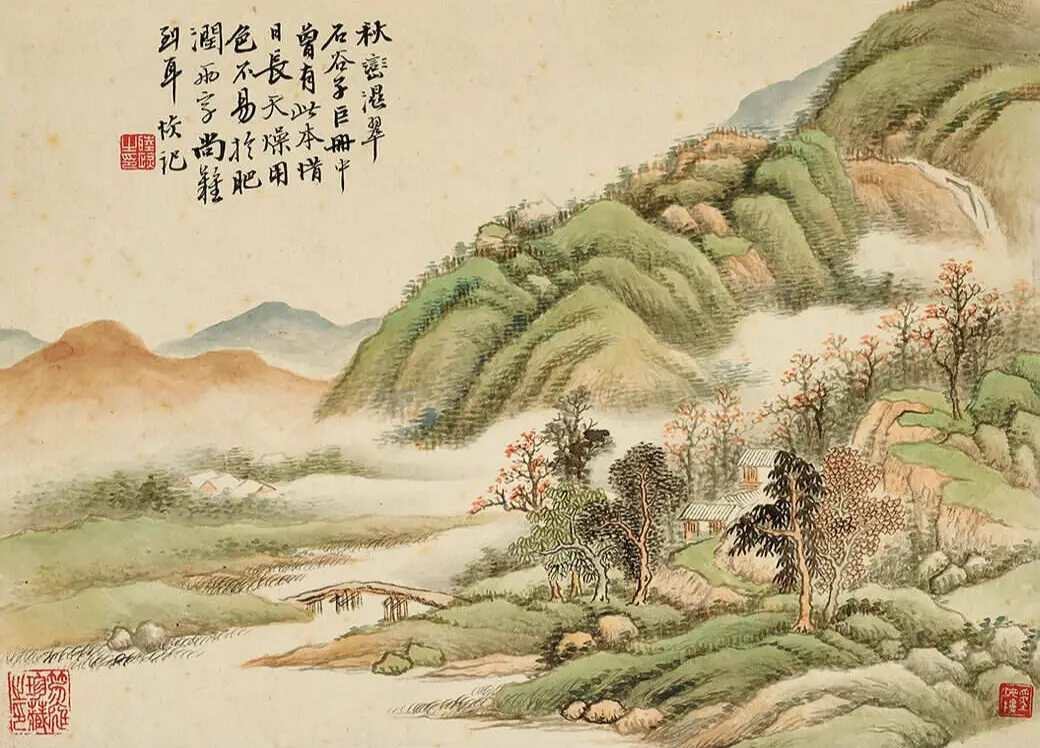 秋巒濕翠
石谷子巨冊中
曾有此本惜
日長天燥用
色不易於肥
潤兩字尚難
到耳 恢記
陸恢之印